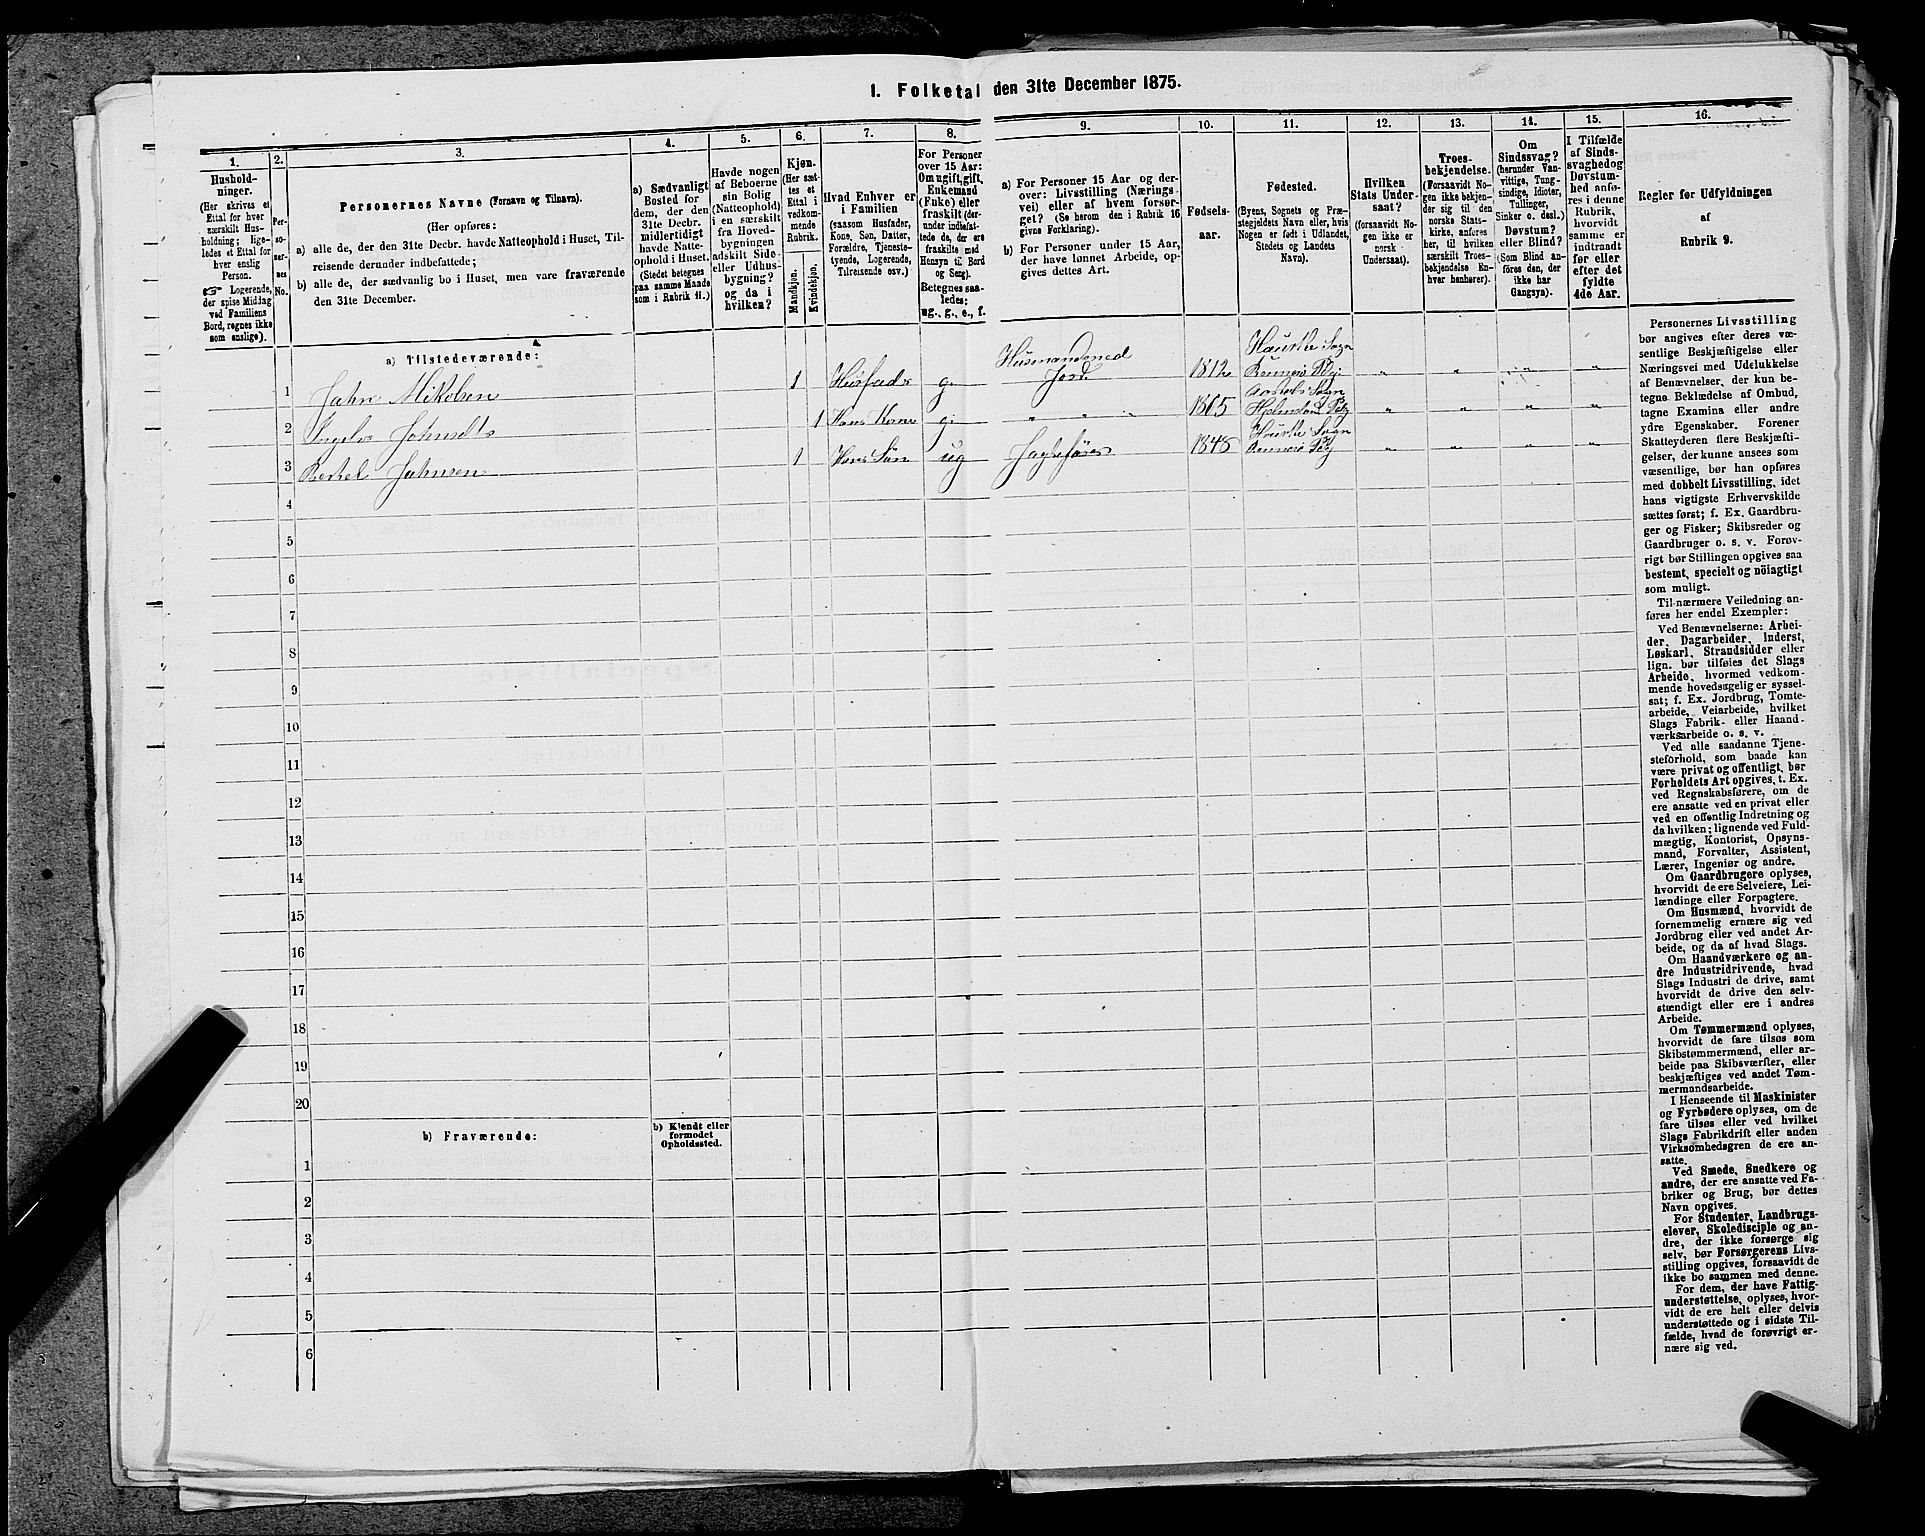 1. Folketal den 31te December 1875.
1.
Hushold-
ninger.
(Her skrives et
Ettal for hver
særskilt Hus-
holdning; lige-
ledes et Ettal for
hver enslig
Person.
Logerende,
der spise Middag
ved Familiens
Bord, regnes ikke
som enslige).
2.
Per-
so-
ner-
nes
No.
3.
Personernes Navne (Fornavn og Tilnavn).
(Her opføres:
a) alle de, der den 31te Decbr. havde Natteophold i Huset, Til-
reisende derunder indbefattede;
b) alle de, der sædvanlig bo i Huset, men vare fraværende
den 31te December.
4.
a) Sædvanligt
Bosted for
dem, der den
31te Decbr.
midlertidigt
havde Natte-
ophold i Huset.
(Stedet betegnes
paa samme Maade
som i Rubrik 11.)
5.
Havde nogen
af Beboerne
sin Bolig
(Natteophold)
i en særskilt
fra Hoved-
bygningen
adskilt Side-
eller Udhus-
bygning?
og da i
hvilken?
6.
Kjøn.
(Her sæt-
tes et
Ettal i
vedkom-
mende
Rubrik.
Mandkjøn.
Kvindekjøn.
7.
Hvad Enhver er
i Familien
(saasom Husfader,
Kone, Søn, Datter,
Forældre, Tjeneste-
tyende, Logerende,
Tilreisende osv.)
8.
For Personer
over 15 Aar:
Om ugift, gift,
Enkemand
(Enke) eller
fraskilt (der-
under indbefat-
tede de, der ere
fraskilte med
Hensyn til Bord
og Seng).
Betegnes saa-
ledes:
ug., g., e., f.
9.
a) For Personer 15 Aar og der-
over: Livsstilling (Nærings-
vei) eller af hvem forsør-
get? (Se herom den i Rubrik 16
givne Forklaring).
b) For Personer under 15 Aar,
der have lønnet Arbeide, op-
gives dettes Art.
10.
Fødsels-
aar.
11.
Fødested.
(Byens, Sognets og Præ-
stegjeldets Navn eller, hvis
Nogen er født i Udlandet,
Stedets og Landets
Navn).
12.
Hvilken
Stats Under-
saat?
(forsaavidt No-
gen ikke er
norsk
Undersaat).
13.
Troes-
bekjendelse.
(Forsaavidt No-
gen ikke bekjen-
der sig til den
norske Stats-
kirke, anføres
her, til hvilken
særskilt Troes-
bekjendelse En-
hver henhører).
14.
Om
Sindssvag?
(herunder Van-
vittige, Tung-
sindige, Idioter,
Tullinger,
Sinker o. desl.)
Døvstum?
eller Blind?
(Som Blind an-
føres den, der
ikke har
Gangsyn).
15.
I Tilfælde
af Sinds-
svaghed og
Døvstum-
hed anfø-
res i denne
Rubrik,
hvorvidt
samme er
indtraadt
før eller
efter det
fyldte
4de Aar.
16.
Regler for Udfyldningen
af
Rubrik 9.
a) Tilstedeværende:
1 John Mikelsen 1 Husfader g. Husmand med Jord 1812 Sogn Rennesø Pgj. " " " "
2 Johnsdt 1 Hans Kone g. " " " Sogn " " " "
3 Bertel Johnsen 1 Hans Søn ug 1848 Sogn Rennesø Pgj " " " "
4
5
6
7
8
9
10
11
12
13
14
15
16
17
18
19
20
b) Fraværende:
b) Kjendt eller
formodet
Opholdssted.
1
2
3
4
5
6
Personernes Livsstilling
bør angives efter deres væ-
sentlige Beskjæftigelse eller
Næringsvei med Udelukkelse
af Benævnelser, der kun be-
tegne Beklædelse af Ombud,
tagne Examina eller andre
ydre Egenskaber. Forener
Skatteyderen flere Beskjæfti-
gelser, der kunne ansees som
væsentlige, bør han opføres
med dobbelt Livsstilling, idet
hans vigtigste Erhvervskilde
sættes først; f. Ex. Gaardbru-
ger og Fisker; Skibsreder og
Gaardbruger o. s. v. Forøv-
rigt bør Stillingen opgives saa
bestemt, specielt og nöiagtigt
som muligt.
Til nærmere Veiledning an-
føres her endel Exempler:
Ved Benævnelserne: Arbei-
der, Dagarbeider, Inderst,
Løskarl, Strandsidder eller
lign. bør tilføies det Slags
Arbeide, hvormed vedkom-
mende hovedsagelig er syssel-
sat; f. Ex. Jordbrug, Tomte-
arbeide, Veiarbeide, hvilket
Slags Fabrik- eller Haand-
værksarbeide o. s. v.
Ved alle saadanne Tjene-
steforhold, som baade kan
være privat og offentligt, bør
Forholdets Art opgives, t. Ex.
ved Regnskabsførere, om de
ere ansatte ved en privat eller
ved en offentlig Indretning og
da hvilken; lignende ved Fuld-
mægtig, Kontorist, Opsyns-
mand, Forvalter, Assistent,
Lærer, Ingeniør og andre.
Om Gaardbrugere oplyses,
hvorvidt de ere Selveiere, Lei-
lændinge eller Forpagtere.
Om Husmænd, hvorvidt de
fornemmelig ernære sig ved
Jordbrug eller ved andet Ar-
beide, og da af hvad Slags.
Om Haandværkere og an-
dre Industridrivende, hvad
Slags Industri de drive, samt
hvorvidt de drive den selv-
stændigt eller ere i andres
Arbeide.
Om Tømmermænd oplyses,
hvorvidt de fare tilsøs som
Skibstømmermænd, eller ar-
beide paa Skibsværfter, eller
beskjæftiges ved andet Tøm-
mermandsarbeide.
I Henseende til Maskinister
og Fyrbødere oplyses, om de
fare tilsøs eller ved hvilket
Slags Fabrikdrift eller anden
Virksomhedsgren de ere an-
satte.
Ved Smede, Snedkere og
andre, der ere ansatte ved Fa-
briker og Brug, bør dettes
Navn opgives.
For Studenter, Landbrugs-
elever, Skoledisciple og an-
dre, der ikke forsørge sig
selv, bør Forsørgerens Livs-
stilling opgives, forsaavidt de
ikke bo sammen med denne.
For dem, der have Fattig-
understøttelse, oplyses, hvor-
vidt de ere helt eller delvis
understøttede og i sidste Til-
fælde, hvad de forøvrigt er-
nære sig ved.